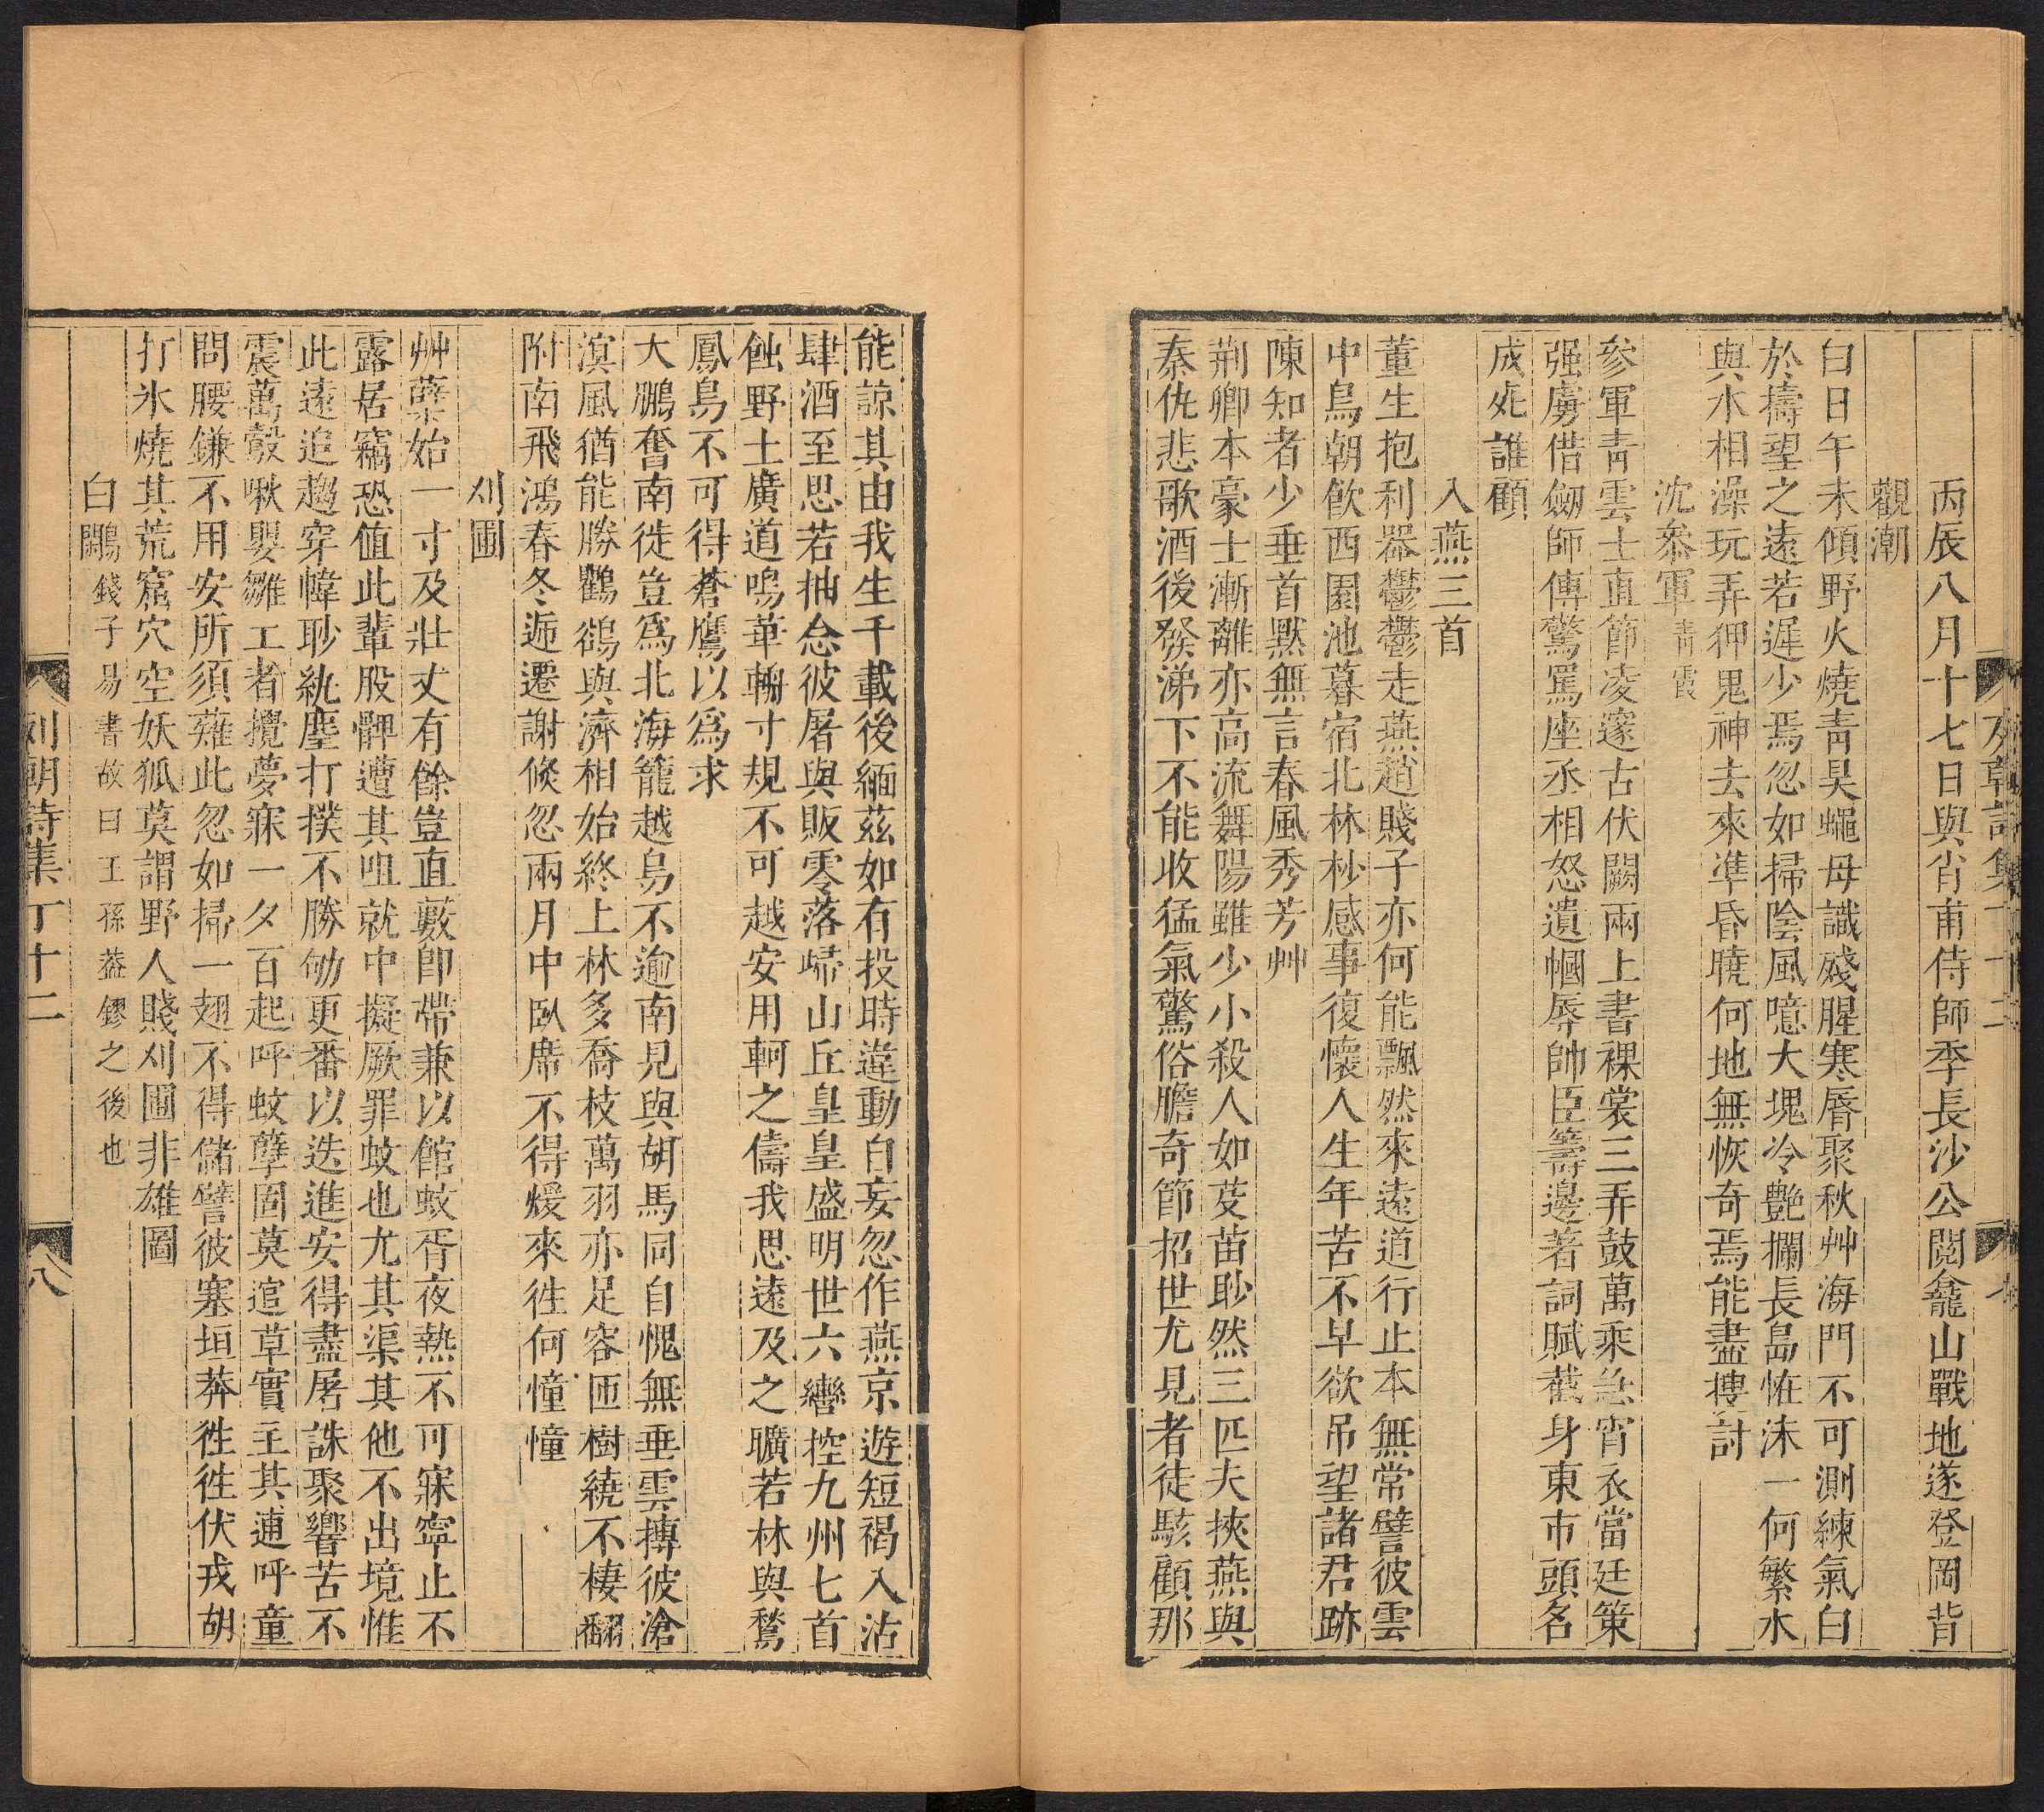 丙辰八月十七日與肖甫侍師季長沙公閱龕山戰地遂登岡背
觀潮
白日午未傾野火燒靑昊蠅母識殘腥寒脣聚秋艸海門不可測練氣白
於擣望之遠若遲少焉忽如掃陰風噫大塊冷艷攔長島恠沫一何繁水
與水相澡玩弄狎鬼神去來準昏曉何地無恢奇焉能盡搏討
沈叅軍靑霞
參軍靑雲士直節凌邃古伏闕兩上書裸裳三弄鼓萬乘急宵衣當廷策
强虜借劒師傳驚罵座丞相怒遺幗辱帥臣籌邊著詞賦截身東市頭名
成死誰顧
入燕三首
董生抱利器鬱鬱走燕趙賤子亦何能飄然來遠道行止本無常譬彼雲
中鳥朝飮西園池暮宿北林杪感事復懷人生年苦不早欲吊望諸君跡
陳知者少垂首默無言春風秀芳艸
荆卿本豪士漸離亦高流舞陽雖少小殺人如芟苗眇然三匹夫挾燕與
秦仇悲歌酒後發涕下不能收猛氣驚俗膽奇節招世尤見者徒駭顧那
能諒其由我生千載後緬茲如有投時違動自妄忽作燕京遊短褐入沽
肆酒至思若抽念彼屠與販零落歸山丘皇皇盛明世六轡控九州七首
蝕野土廣道鳴華輈寸規不可越安用軻之儔我思遠及之曠若林與鶖
鳳鳥不可得蒼鷹以爲求
大鵬奮南徙豈爲北海籠越鳥不逾南見與胡馬同自愧無垂雲摶彼滄
溟風猶能勝鸛鵒與濟相始終上林多喬枝萬羽亦足容匝樹繞不棲翻
附南飛鴻春冬遞遷謝倏忽兩月中臥席不得煖來徃何憧憧
刈圃
艸蘖始一寸及壯丈有餘豈直藪卽帶兼以館蚊胥夜熱不可寐寧止不
露居竊恐値此輩股髀遭其咀就中擬厥罪蚊也尤其渠其他不出境惟
此遠追趨穿幃眇紈塵打撲不勝劬更番以迭進安得盡屠誅聚響苦不
震萬鷇啾嬰雛工者攪夢寐一夕百起呼蚊孽固莫逭草實主其逋呼童
問腰鎌不用安所須薙此忽如掃一翅不得儲譬彼塞垣莽徃徃伏戎胡
打氷燒其荒窟穴空妖狐莫謂野人賤刈圃非雄圖
白鷴錢子易書故曰王孫葢鏐之後也
列朝詩集丁十二 八